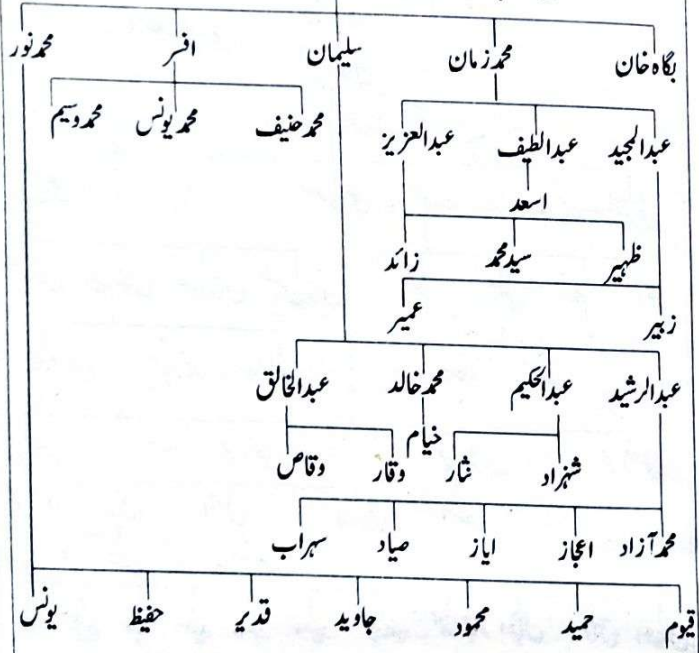 بگاہ خان محمد زمان سلیمان افسر محمد نور
محمد حنیف محمد یونس محمد وسیم
عبدالمجید عبدالطیف عبدالعزیز
اسعد
ظہیر سید محمد زائد
زبیر عمیر
عبدالرشید عبدالحکیم محمد خالد عبدالخالق
خیام
شہزاد نثار وقار وقاص
محمد آزاد اعجاز ایاز صیاد سہراب
قیوم حمید محمود جاوید قدیر حفیظ یونس